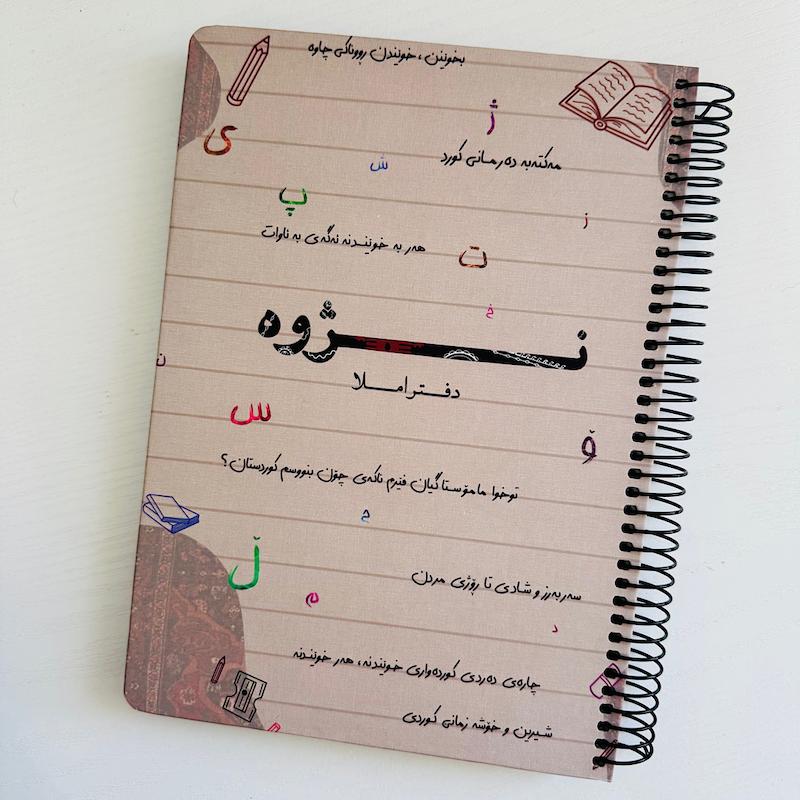 بخوێنن، خوێندن ڕووناکی چاوە
ژ
ی
مەکتەبە دەرمانی کورد
ش
پ
ز
هەر بە خوێندنە ئەگەی بە ئاوات
ت
خ
نـــژوە
ن
دفتر املا
س
ۆ
توخوا مامۆستا گیان فێرم ناکەی چۆن بنووسم کوردستان؟
ح
ڵ
سەربەرز و شادی تا ڕۆژی مردن
م
د
چارەی دەردی کوردەواری خوێندنە، هەر خوێندنە
شیرین و خۆشە زمانی کوردی